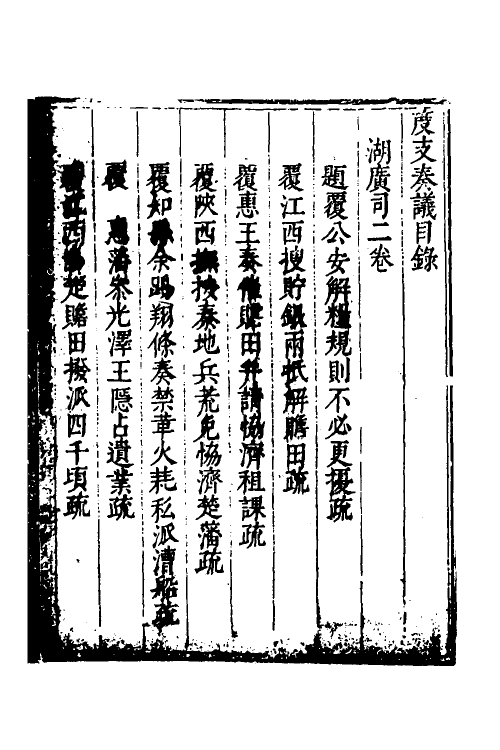 度支奏議目錄
湖廣司二卷
題覆公安解糧規則不必更擾疏
覆江西搜貯銀兩抵解贍田疏
覆惠王奏催贍田并請協濟租課疏
覆陝西撫按秦地兵荒免協濟楚藩疏
覆知縣余鵾翔條奏禁革火耗私派漕船疏
覆惠藩參光澤王隱占遺業疏
覆江西協楚贍田撥派四千頃疏